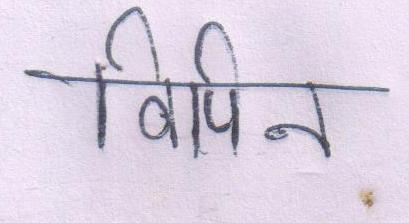 विपिन